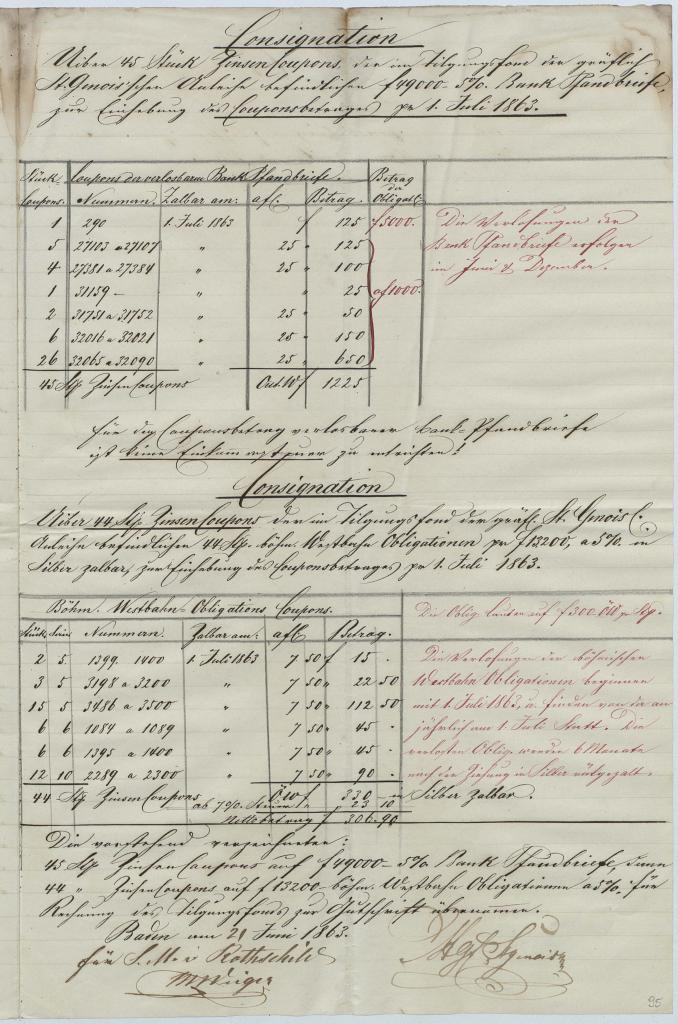 Consignation
Ueber 45 Stück Zinsen Coupons der im Tilgungsfond der gräflich
St. Genois'schen Anleihe befindlichen f 49000 - 5% Bank Pfandbriefe,
zur Einhebung des Couponsbetrages pr 1. Juli 1863.
Stück Coupons der verlosbaren Bank Pfandbriefe. Betrag der
Coupons. Nummern. Zalbar am: a fl. Betrag. Obligat.
1 290 1. Juli 1863 f 125 f 5000. Die Verlosungen der
5 27103 a 27107 " 25 " 125 Bank Pfandbriefe erfolgen
4 27381 a 27384 " 25 " 100 im Juni & Dezember.
1 31159 - " " 25 a f 1000.
2 31751 a 31752 " 25 " 50
6 32016 a 32021 " 25 " 150
26 32065 a 32090 " 25 " 650
45 Stk Zinsen Coupons Oest W f 1225
für den Couponsbetrag verlosbarer Bank-Pfandbriefe
ist keine Einkommensteuer zu entrichten!
Consignation
Uiber 44 Stk. Zinsen Coupons der im Tilgungsfond der gräfl. St. Genois'schen
Anleihe befindlichen 44 Stk. böhm. Westbahn Obligationen pr f 13200, a 5% in
Silber zalbar, zur Einhebung des Couponsbetrages pr 1. Juli 1863.
Böhm. Westbahn Obligations Coupons. Die Oblig. lauten auf f 300 ÖW pr Stk.
Stück Serie Nummern. Zalbar am: a fl Betrag.
2 5. 1399. 1400 1. Juli 1863 7 50 f 15 . Die Verlosungen der böhmischen
3 5 3198 a 3200 " 7 50 " 22 50 Westbahn Obligationen beginnen
15 5 3486 a 3500 " 7 50 " 112 50 mit 1. Juli 1863, u. finden von da an
6 6 1084 a 1089 " 7 50 " 45 . jährlich am 1. Juli Statt. Die
6 6 1395 a 1400 " 7 50 " 45 . verlosten Oblig. werden 6 Monate
12 10 2289 a 2300 " 7 50 " 90 . nach der Ziehung in Silber rückgezalt.
44 Stk Zinsen Coupons ÖW f 330 - in Silber zalbar.
ab 7% Steuer " 23 10
Nettobetrag f 306.90
Die vorstehend verzeichneten:
45 Stk Zinsen Coupons auf f 49000 - 5% Bank Pfandbriefe, dann
44 " Zinsen Coupons auf f 13200 böhm. Westbahn Obligationen a 5%. für
Rechnung des Tilgungsfonds zur Gutschrift übernomen.
Baden am 21 Juni 1863.
für S. M v Rothschild